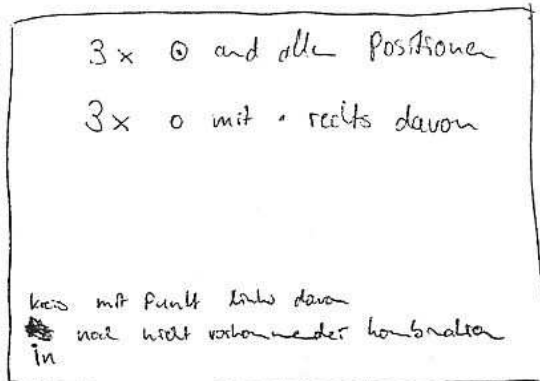 3x ⊙ and allen Positionen
3x o mit • rechts davon
kreis mit Punkt links davon
noch nicht vorkommender kombination
in